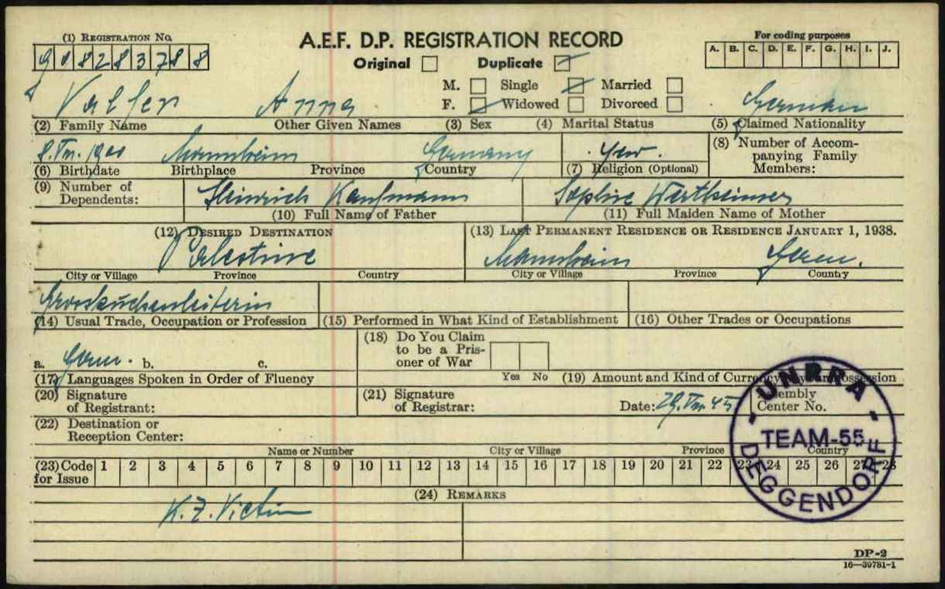 (1) REGISTRATION NO.
A.E.F. D.P. REGISTRATION RECORD
For coding purposes
Original Duplicate
A. B. C. D. E. F. G. H. I. J.
M. Single Married
F. Widowed Divorced
Anna German
(2) Family Name Other Given Names (3) Sex (4) Marital Status (5) Claimed Nationality
Mannheim Germany Jew.
(6) Birthdate Birthplace Province Country (7) Religion (Optional) (8) Number of Accompanying Family Members:
(9) Number of Dependents:
Heinrich Kaufmann Sophie Wertheimer
(10) Full Name of Father (11) Full Maiden Name of Mother
(12) DESIRED DESTINATION (13) LAST PERMANENT RESIDENCE OR RESIDENCE JANUARY 1, 1938.
Palestine Mannheim Germ.
City or Village Province Country City or Village Province Country
Grossküchenleiterin
(14) Usual Trade, Occupation or Profession (15) Performed in What Kind of Establishment (16) Other Trades or Occupations
a. Germ. b. c.
(18) Do You Claim to be a Prisoner of War
Yes No
(17) Languages Spoken in Order of Fluency (19) Amount and Kind of Currency
(20) Signature of Registrant: (21) Signature of Registrar: Date: Assembly Center No.
(22) Destination or Reception Center:
Name or Number City or Village Province Country
(23) Code for Issue 1 2 3 4 5 6 7 8 9 10 11 12 13 14 15 16 17 18 19 20 21 22 23 24 25 26 27 28
(24) REMARKS
K.Z. Victim
UNRRA
TEAM-55
DEGGENDORF
DP-2
16—39781-1